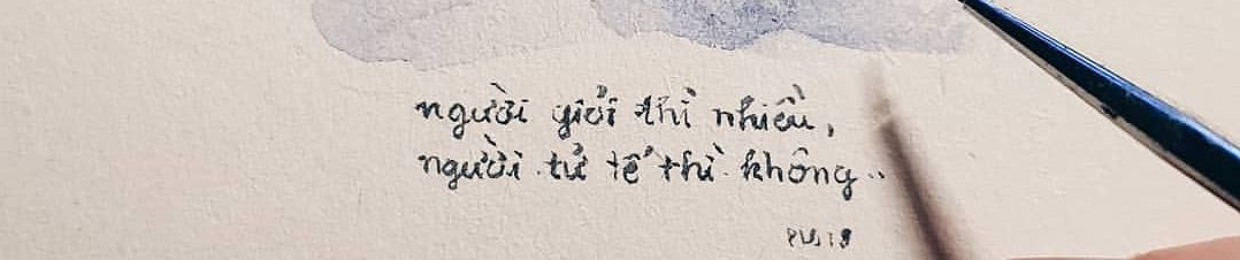 người giỏi thì nhiều,
người tử tế thì không..